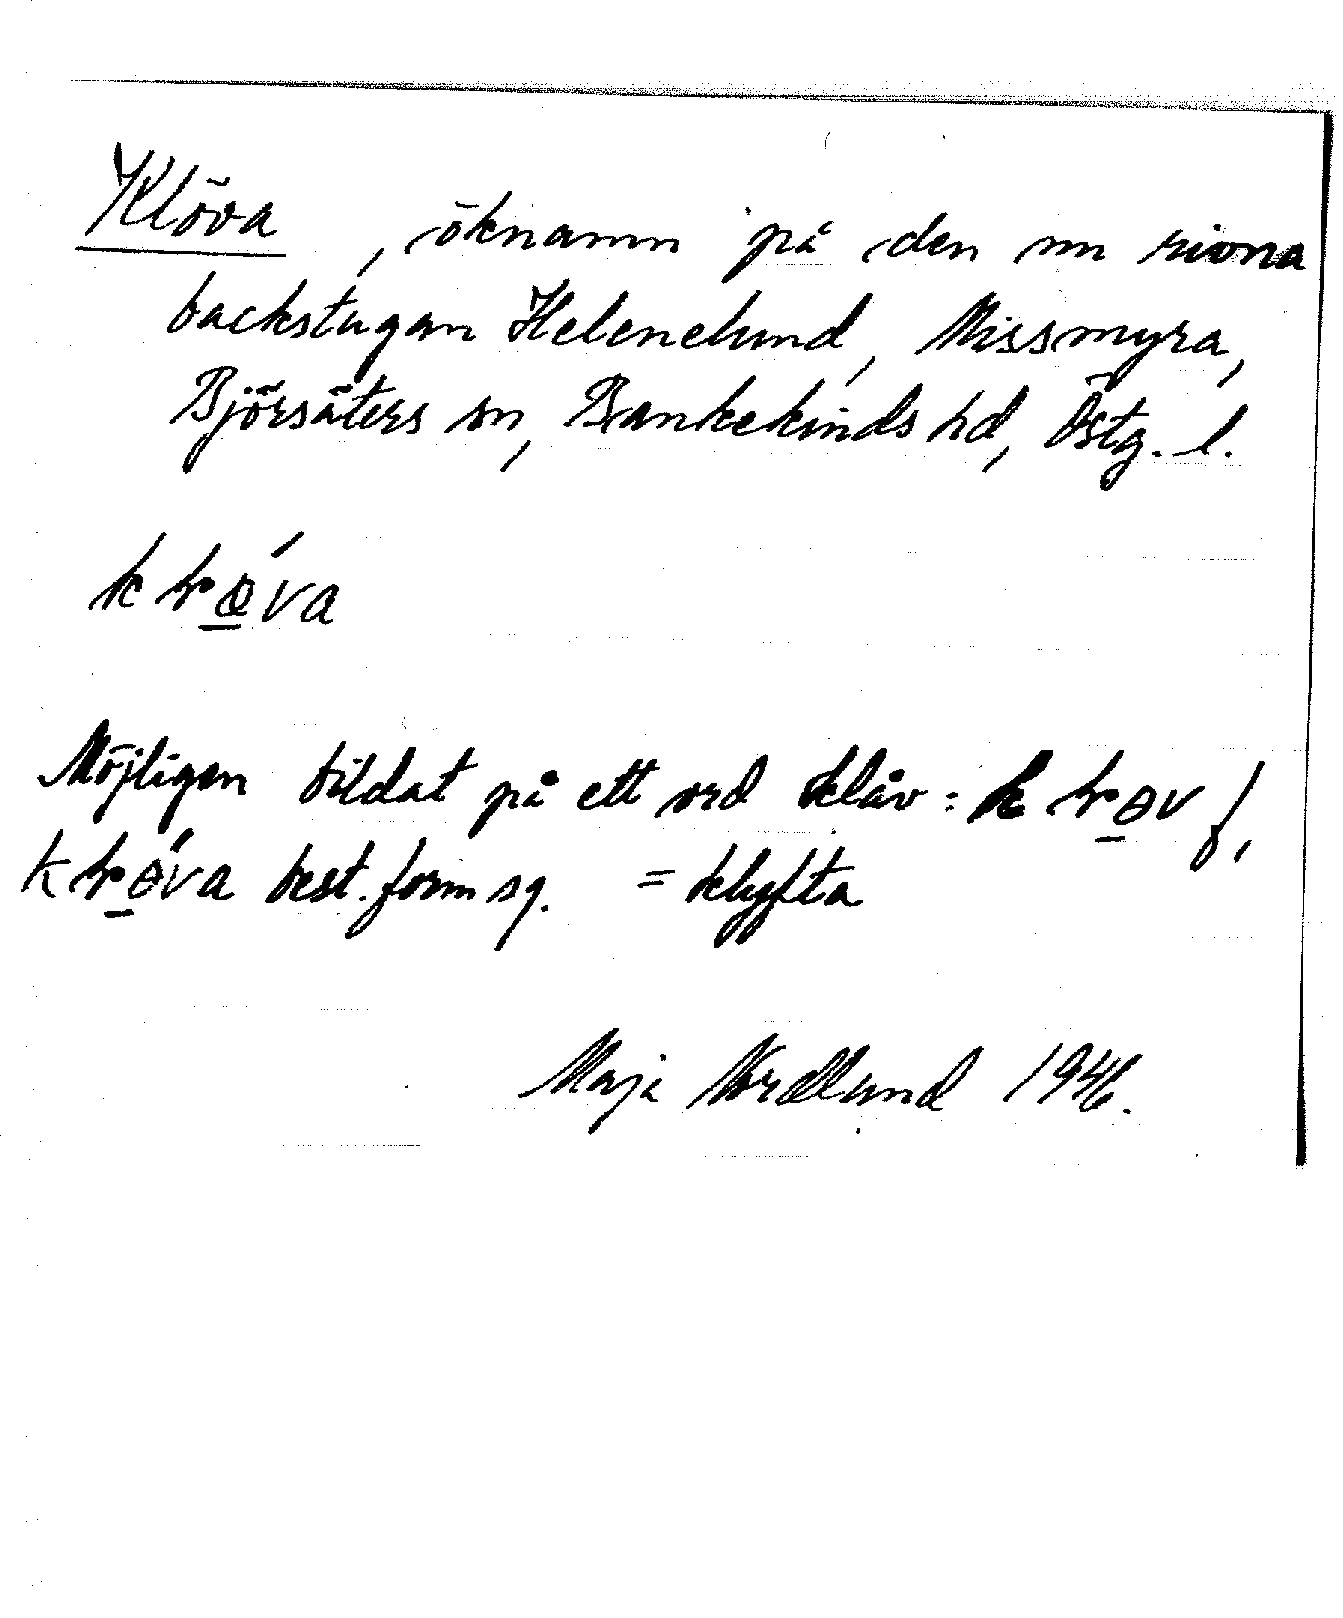 Klöva, öknamn på den nu rivna
backstugan Helenelund, Missmyra,
Björsäters sn, Bankekinds hd, Östg. l.
kłö̱́va
Möjligen bildat på ett ord klåv: kło̱v f,
kłó̱va best. form sg. = klyfta
Maja Nordlund 1946.